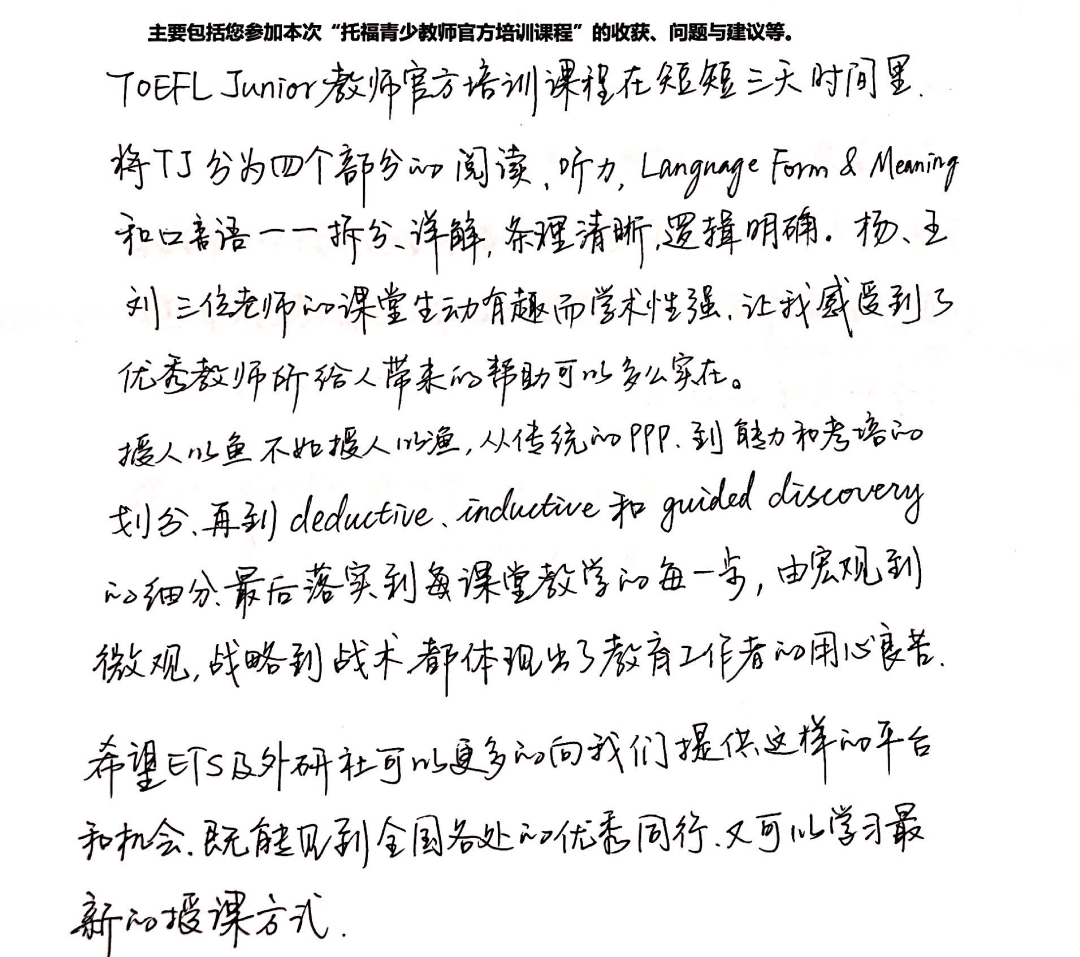 主要包括您参加本次“托福青少教师官方培训课程”的收获、问题与建议等。
TOEFL Junior教师官方培训课程在短短三天时间里.
将TJ分为四个部分的阅读、听力, Language Form & Meaning
和口语一一拆分、详解,条理清晰,逻辑明确. 杨、王
刘三位老师的课堂生动有趣而学术性强.让我感受到了
优秀教师所给人带来的帮助可以多么实在。
授人以鱼不如授人以渔,从传统的PPP.到能力和考培的
划分、再到deductive、inductive和guided discovery
的细分.最后落实到每课堂教学的每一步,由宏观到
微观,战略到战术.都体现出了教育工作者的用心良苦.
希望ETS及外研社可以更多的向我们提供这样的平台
和机会.既能见到全国各处的优秀同行.又可以学习最
新的授课方式.